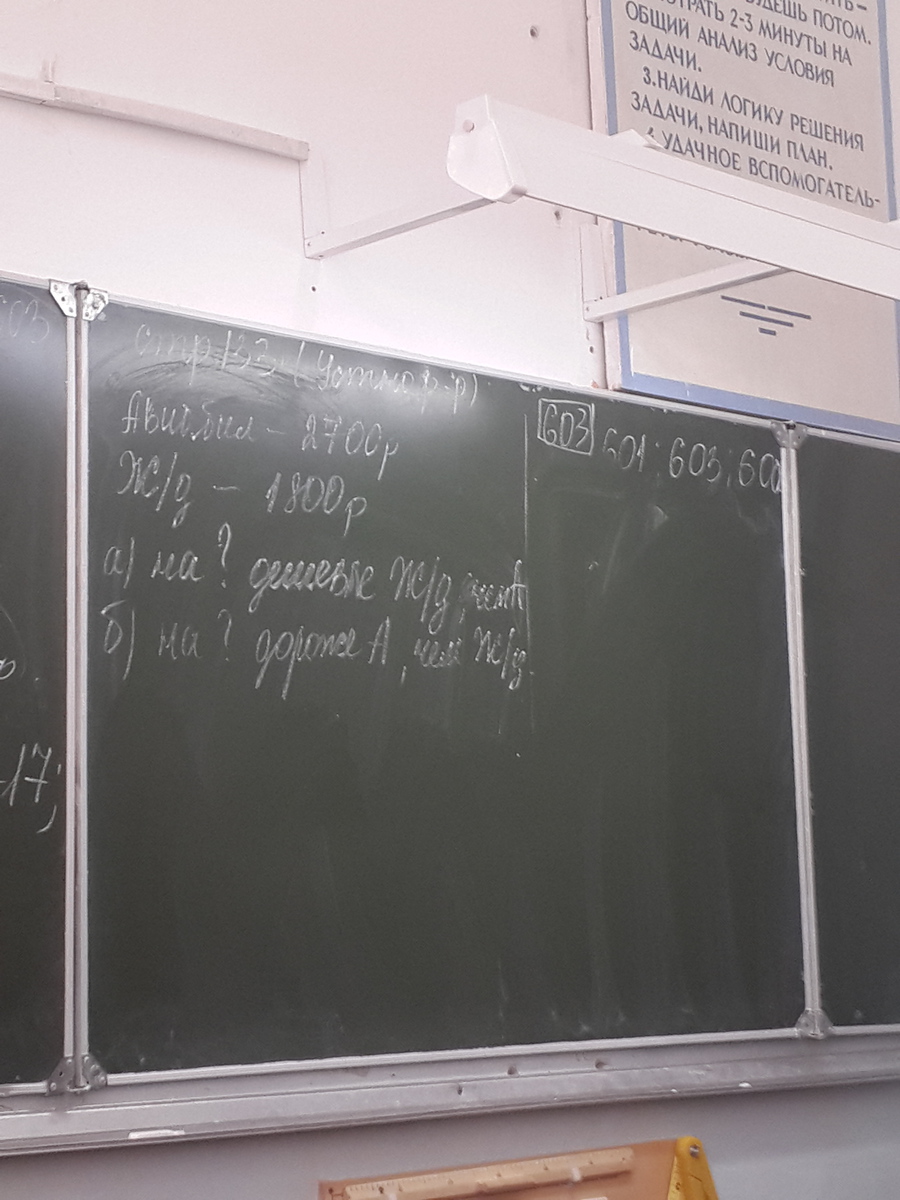 УДЕШЬ ПОТОМ.
ТРАТЬ 2-3 МИНУТЫ НА
ОБЩИЙ АНАЛИЗ УСЛОВИЯ
ЗАДАЧИ.
3. НАЙДИ ЛОГИКУ РЕШЕНИЯ
ЗАДАЧИ, НАПИШИ ПЛАН.
УДАЧНОЕ ВСПОМОГАТЕЛЬ-
603
стр 133 (Устно ф-р)
Ави.бил - 2700р
Ж/д - 1800р
а) на ? дешевле Ж/д, чем А
б) на ? дороже А, чем Ж/д.
603 601; 603; 60
17;